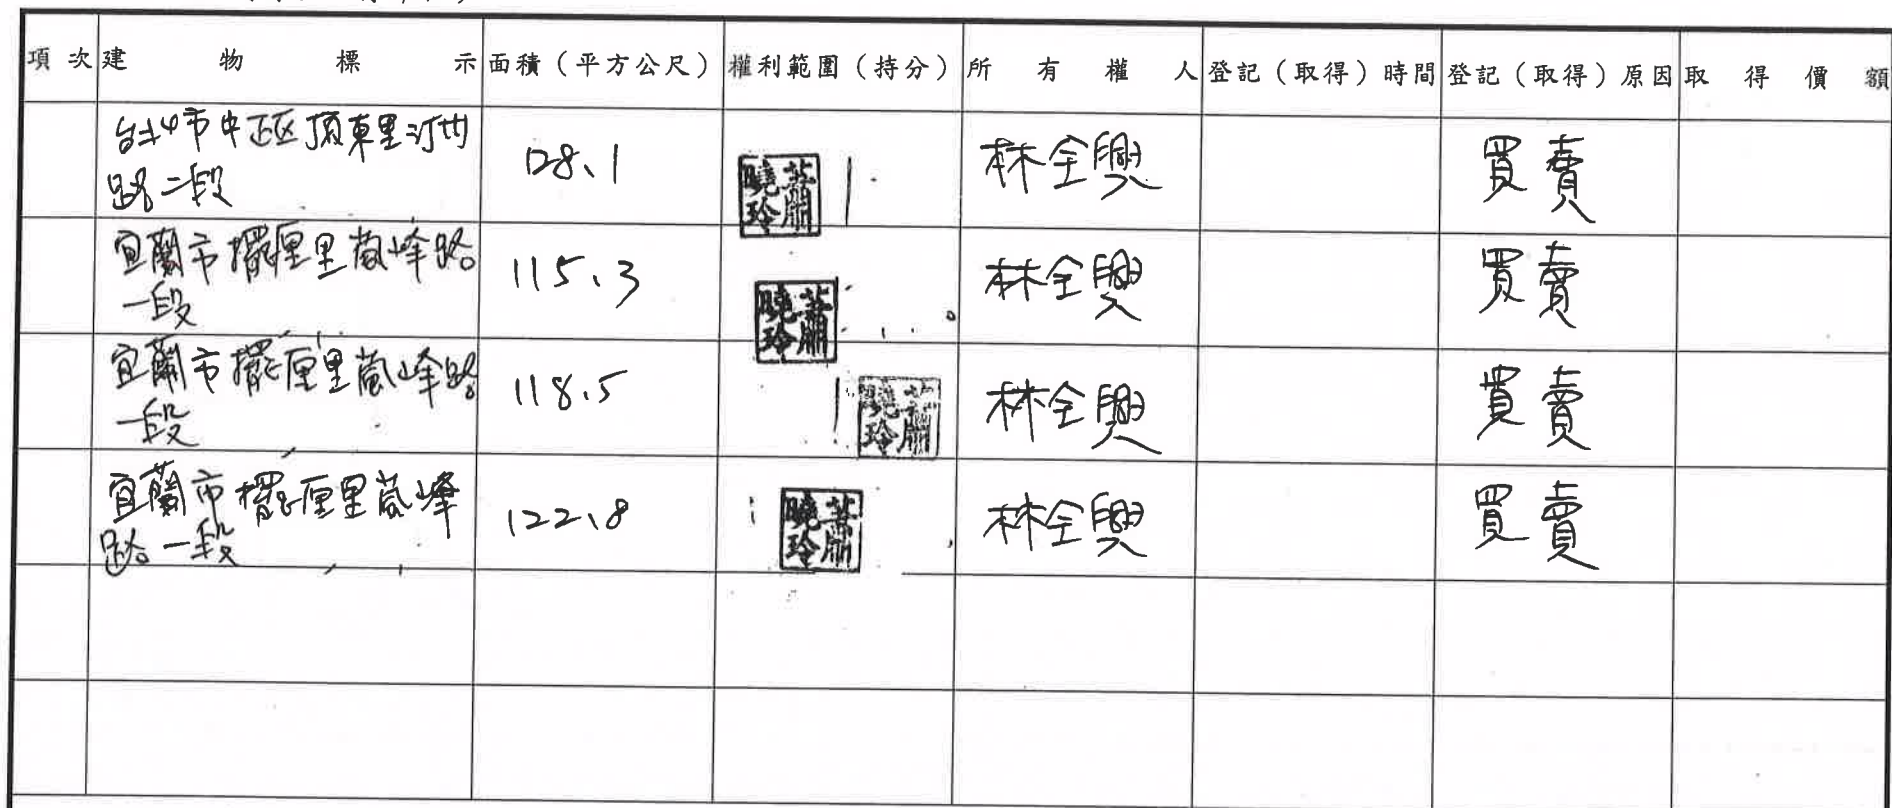 項次 建物標示 面積（平方公尺） 權利範圍（持分） 所有權人 登記（取得）時間 登記（取得）原因 取得價額
台北市中正區頂東里汀州
路二段 128.1 蕭曉玲 1 林全興 買賣
宜蘭市擺厘里嵐峰路
一段 115.3 蕭曉玲 林全興 買賣
宜蘭市擺厘里嵐峰路
一段 118.5 1 蕭曉玲 林全興 買賣
宜蘭市擺厘里嵐峰
路一段 122.8 1 蕭曉玲 林全興 買賣